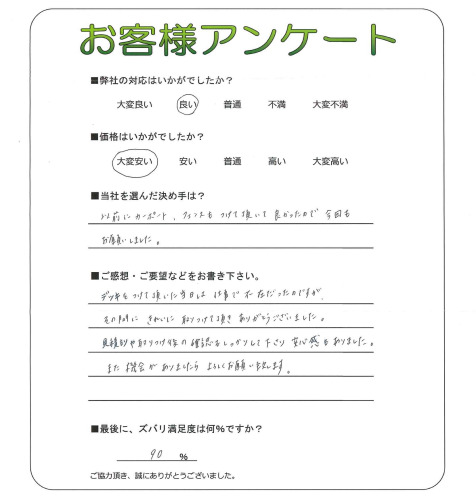 お客様アンケート
■弊社の対応はいかがでしたか？
大変良い 良い 普通 不満 大変不満
■価格はいかがでしたか？
大変安い 安い 普通 高い 大変高い
■当社を選んだ決め手は？
以前にカーポート、フェンスもつけて頂いて良かったので今回も
お願いしました。
■ご感想・ご要望などをお書き下さい。
デッキをつけて頂いた当日は仕事で不在だったのですが、
その間にきれいに取りつけて頂きありがとうございました。
見積りや取りつけ時の確認もしっかりして下さり安心感もありました。
また機会がありましたらよろしくお願い致します。
■最後に、ズバリ満足度は何％ですか？
90 %
ご協力頂き、誠にありがとうございました。